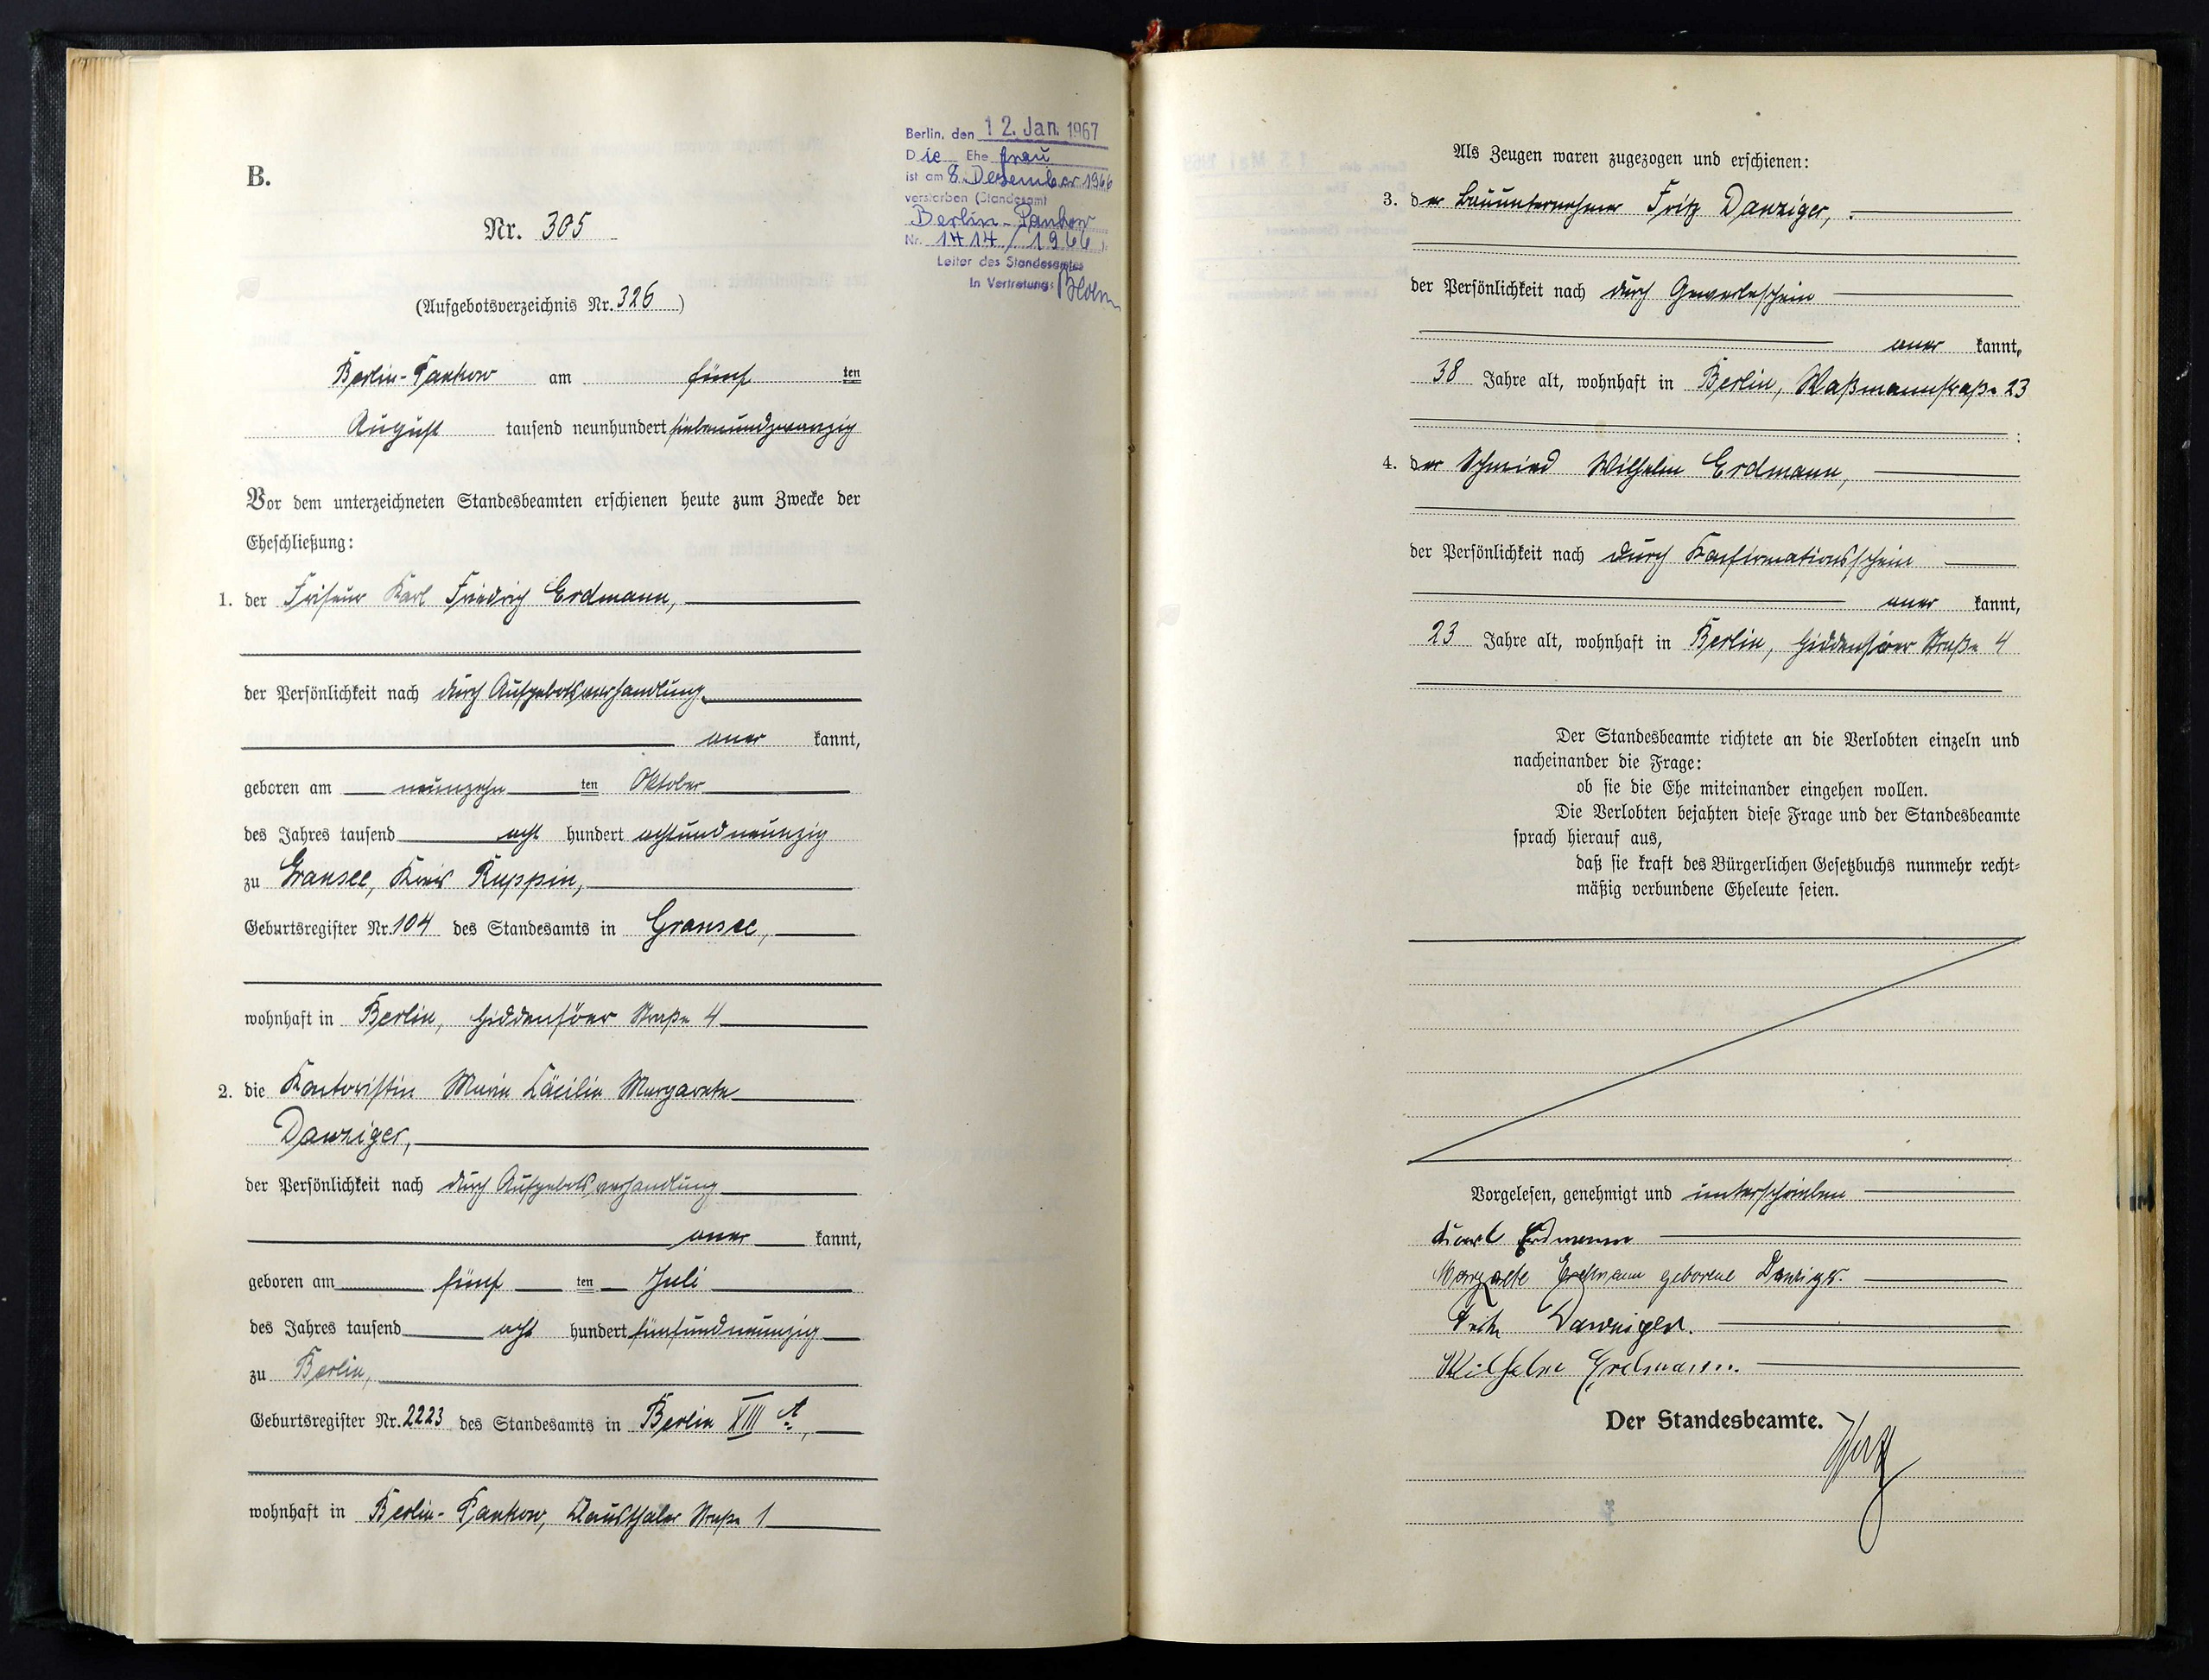 B.
Nr. 305
(Aufgebotsverzeichnis Nr. 326)
Berlin, den 12. Jan. 1967
Die Ehefrau
ist am 8. Dezember 1966
verstorben (Standesamt
Berlin-Pankow
Nr. 1414/1966)
Leiter des Standesamtes
In Vertretung:
Berlin-Pankow am fünf ten
August tausend neunhundert siebenundzwanzig
Vor dem unterzeichneten Standesbeamten erschienen heute zum Zwecke der
Eheschließung:
1. der Friseur Karl Friedrich Erdmann,
der Persönlichkeit nach durch Aufgebotsverhandlung
aner kannt,
geboren am neunzehn ten Oktober
des Jahres tausend acht hundert achtundneunzig
zu Gransee, Kreis Ruppin,
Geburtsregister Nr. 104 des Standesamts in Gransee,
wohnhaft in Berlin, Hiddenseer Straße 4
2. die Kontoristin Marie Cäcilie Margarete
Danziger,
der Persönlichkeit nach durch Aufgebotsverhandlung
aner kannt,
geboren am fünf ten Juli
des Jahres tausend acht hundert fünfundneunzig
zu Berlin,
Geburtsregister Nr. 2223 des Standesamts in Berlin XIII A,
wohnhaft in Berlin-Pankow, Clausthaler Straße 1
Als Zeugen waren zugezogen und erschienen:
3. der Bauunternehmer Fritz Danziger,
der Persönlichkeit nach durch Gewerbeschein
aner kannt,
38 Jahre alt, wohnhaft in Berlin, Waßmannstraße 23
;
4. der Schmied Wilhelm Erdmann,
der Persönlichkeit nach durch Konfirmationsschein
aner kannt,
23 Jahre alt, wohnhaft in Berlin, Hiddenseer Straße 4
Der Standesbeamte richtete an die Verlobten einzeln und
nacheinander die Frage:
ob sie die Ehe miteinander eingehen wollen.
Die Verlobten bejahten diese Frage und der Standesbeamte
sprach hierauf aus,
daß sie kraft des Bürgerlichen Gesetzbuchs nunmehr recht-
mäßig verbundene Eheleute seien.
Vorgelesen, genehmigt und unterschrieben
Karl Erdmann
Margarete Erdmann geborene Danziger.
Fritz Danziger.
Wilhelm Erdmann.
Der Standesbeamte.